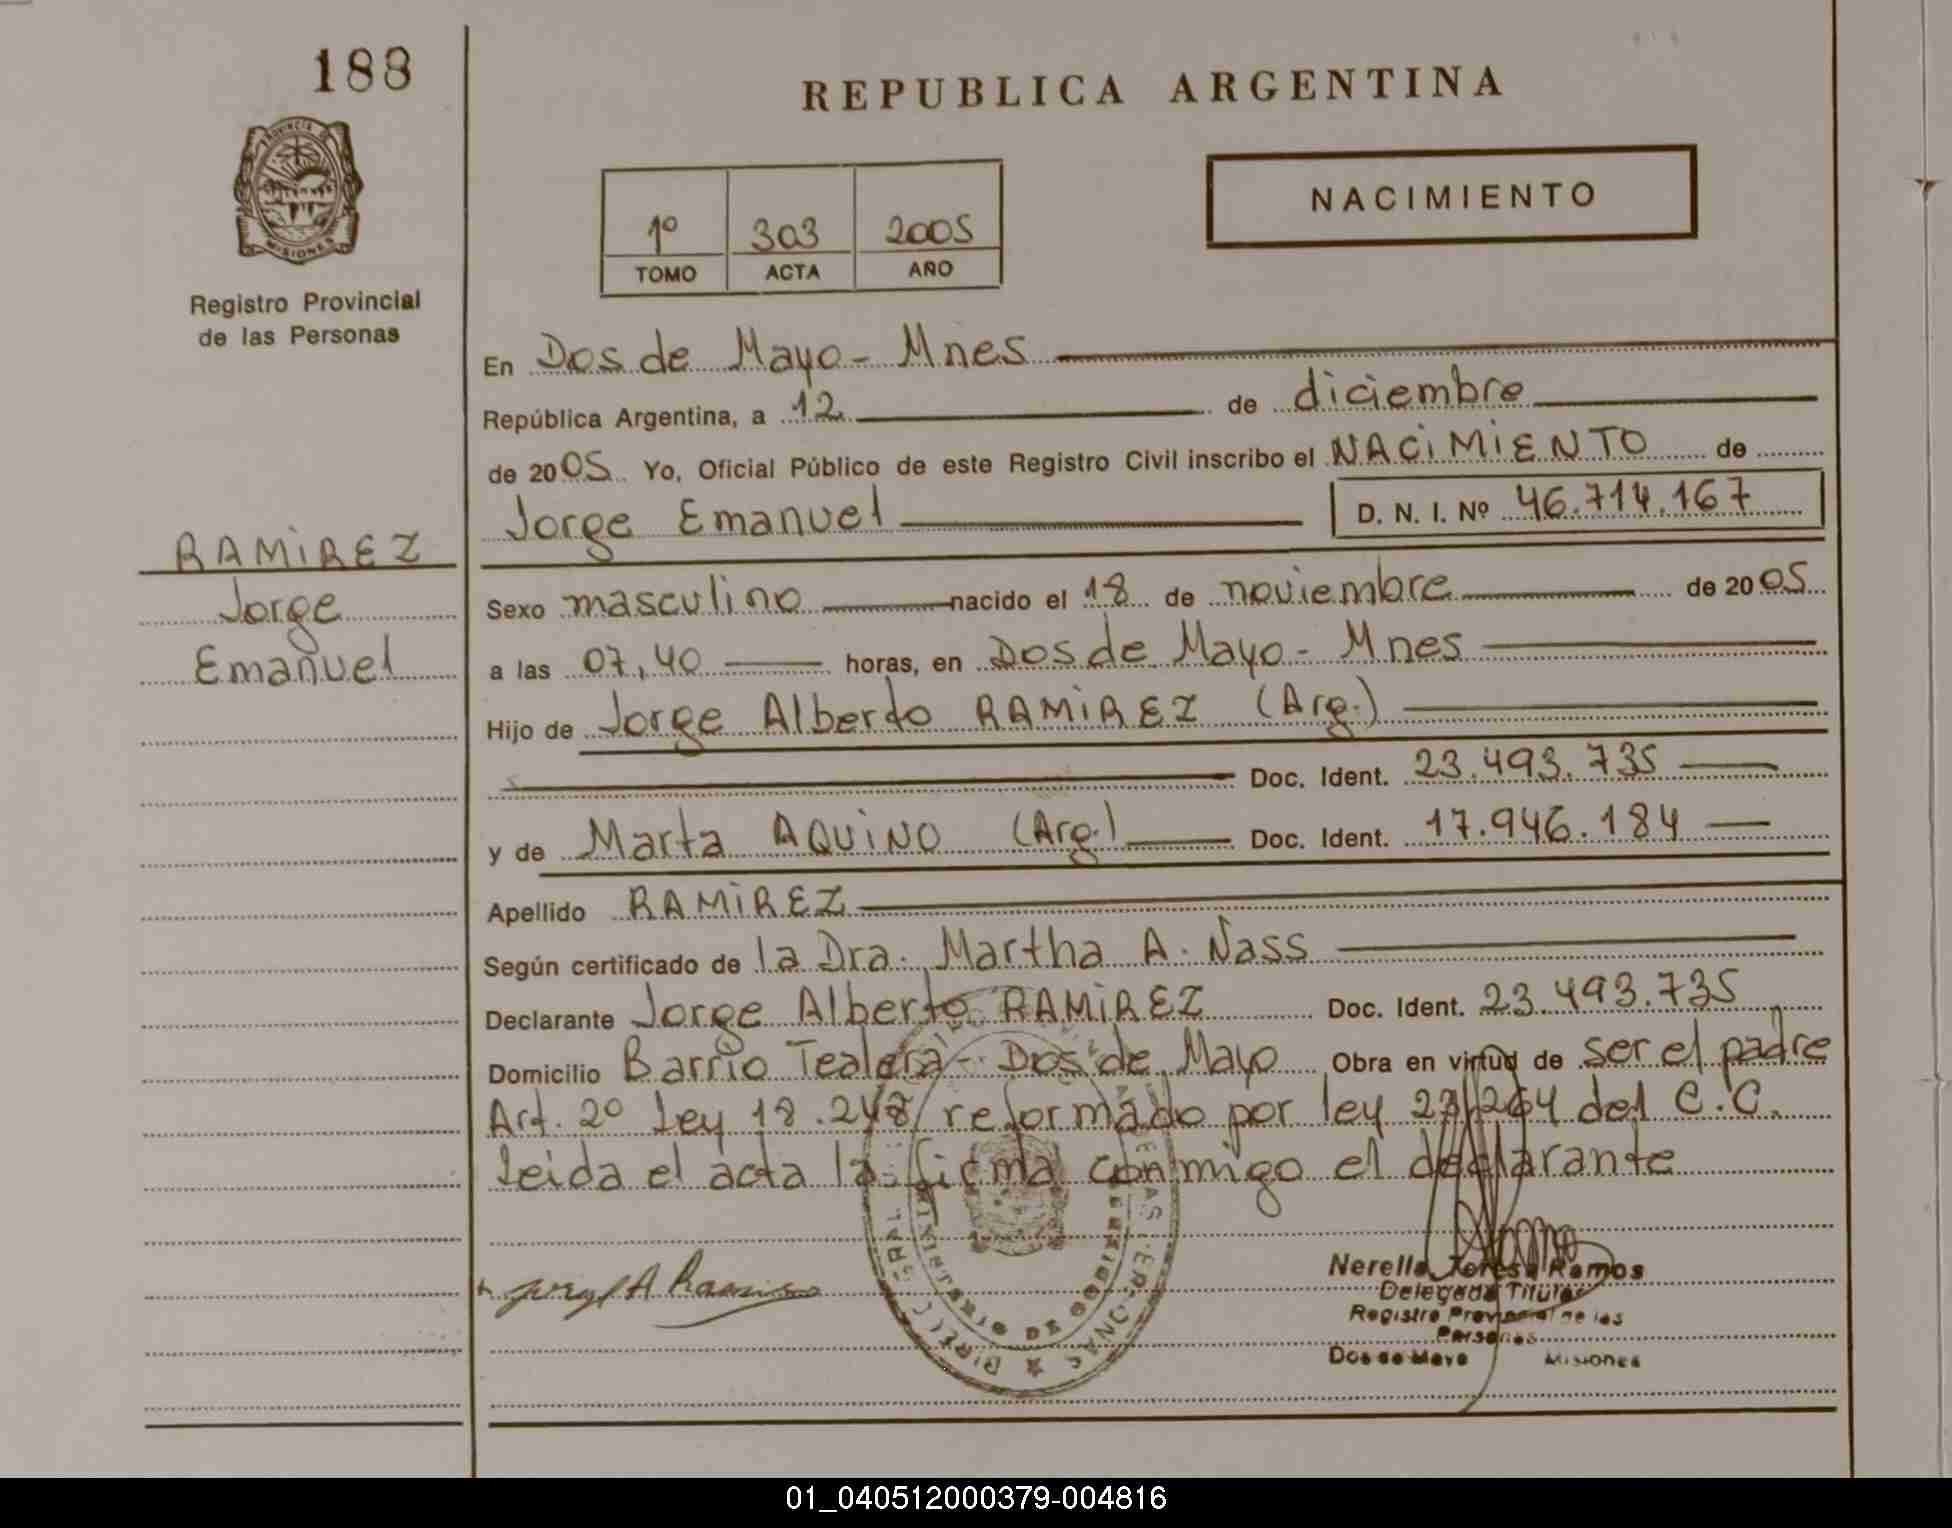 188
PROVINCIA DE
MISIONES
Registro Provincial
de las Personas
REPUBLICA ARGENTINA
1º 303 2005
TOMO ACTA AÑO
NACIMIENTO
RAMIREZ
Jorge
Emanuel
En Dos de Mayo - Mnes
República Argentina, a 12 de diciembre
de 2005 Yo, Oficial Público de este Registro Civil inscribo el NACIMIENTO de
Jorge Emanuel D. N. I. Nº 46.714.167
Sexo masculino nacido el 18 de noviembre de 2005
a las 07,40 horas, en Dos de Mayo - Mnes
Hijo de Jorge Alberto RAMIREZ (Arg.)
Doc. Ident. 23.493.735
y de Marta AQUINO (Arg.) Doc. Ident. 17.946.184
Apellido RAMIREZ
Según certificado de la Dra. Martha A. Nass
Declarante Jorge Alberto RAMIREZ Doc. Ident. 23.493.735
Domicilio Barrio Tealera - Dos de Mayo Obra en virtud de ser el padre
Art. 2º Ley 18.248 reformado por ley 23.264 del C.C.
Leida el acta la firma conmigo el declarante
Jorge A Ramirez
Nerella Teresa Ramos
Delegada Titular
Registro Provincial de las
Personas
Dos de Mayo Misiones
01_040512000379-004816